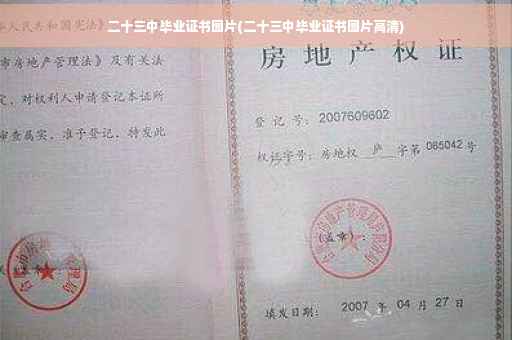 二十三中毕业证书图片(二十三中毕业证书图片高清)
人民共和国宪法》
市房地产管理法》及有关法
定，对权利人申请登记本证所
审查属实，准予登记，特发此
房地产权证
登记号：2007609602
权证字号：房地权 庐 字第 065042 号
(盖章)：
填发日期：2007 年 04 月 27 日